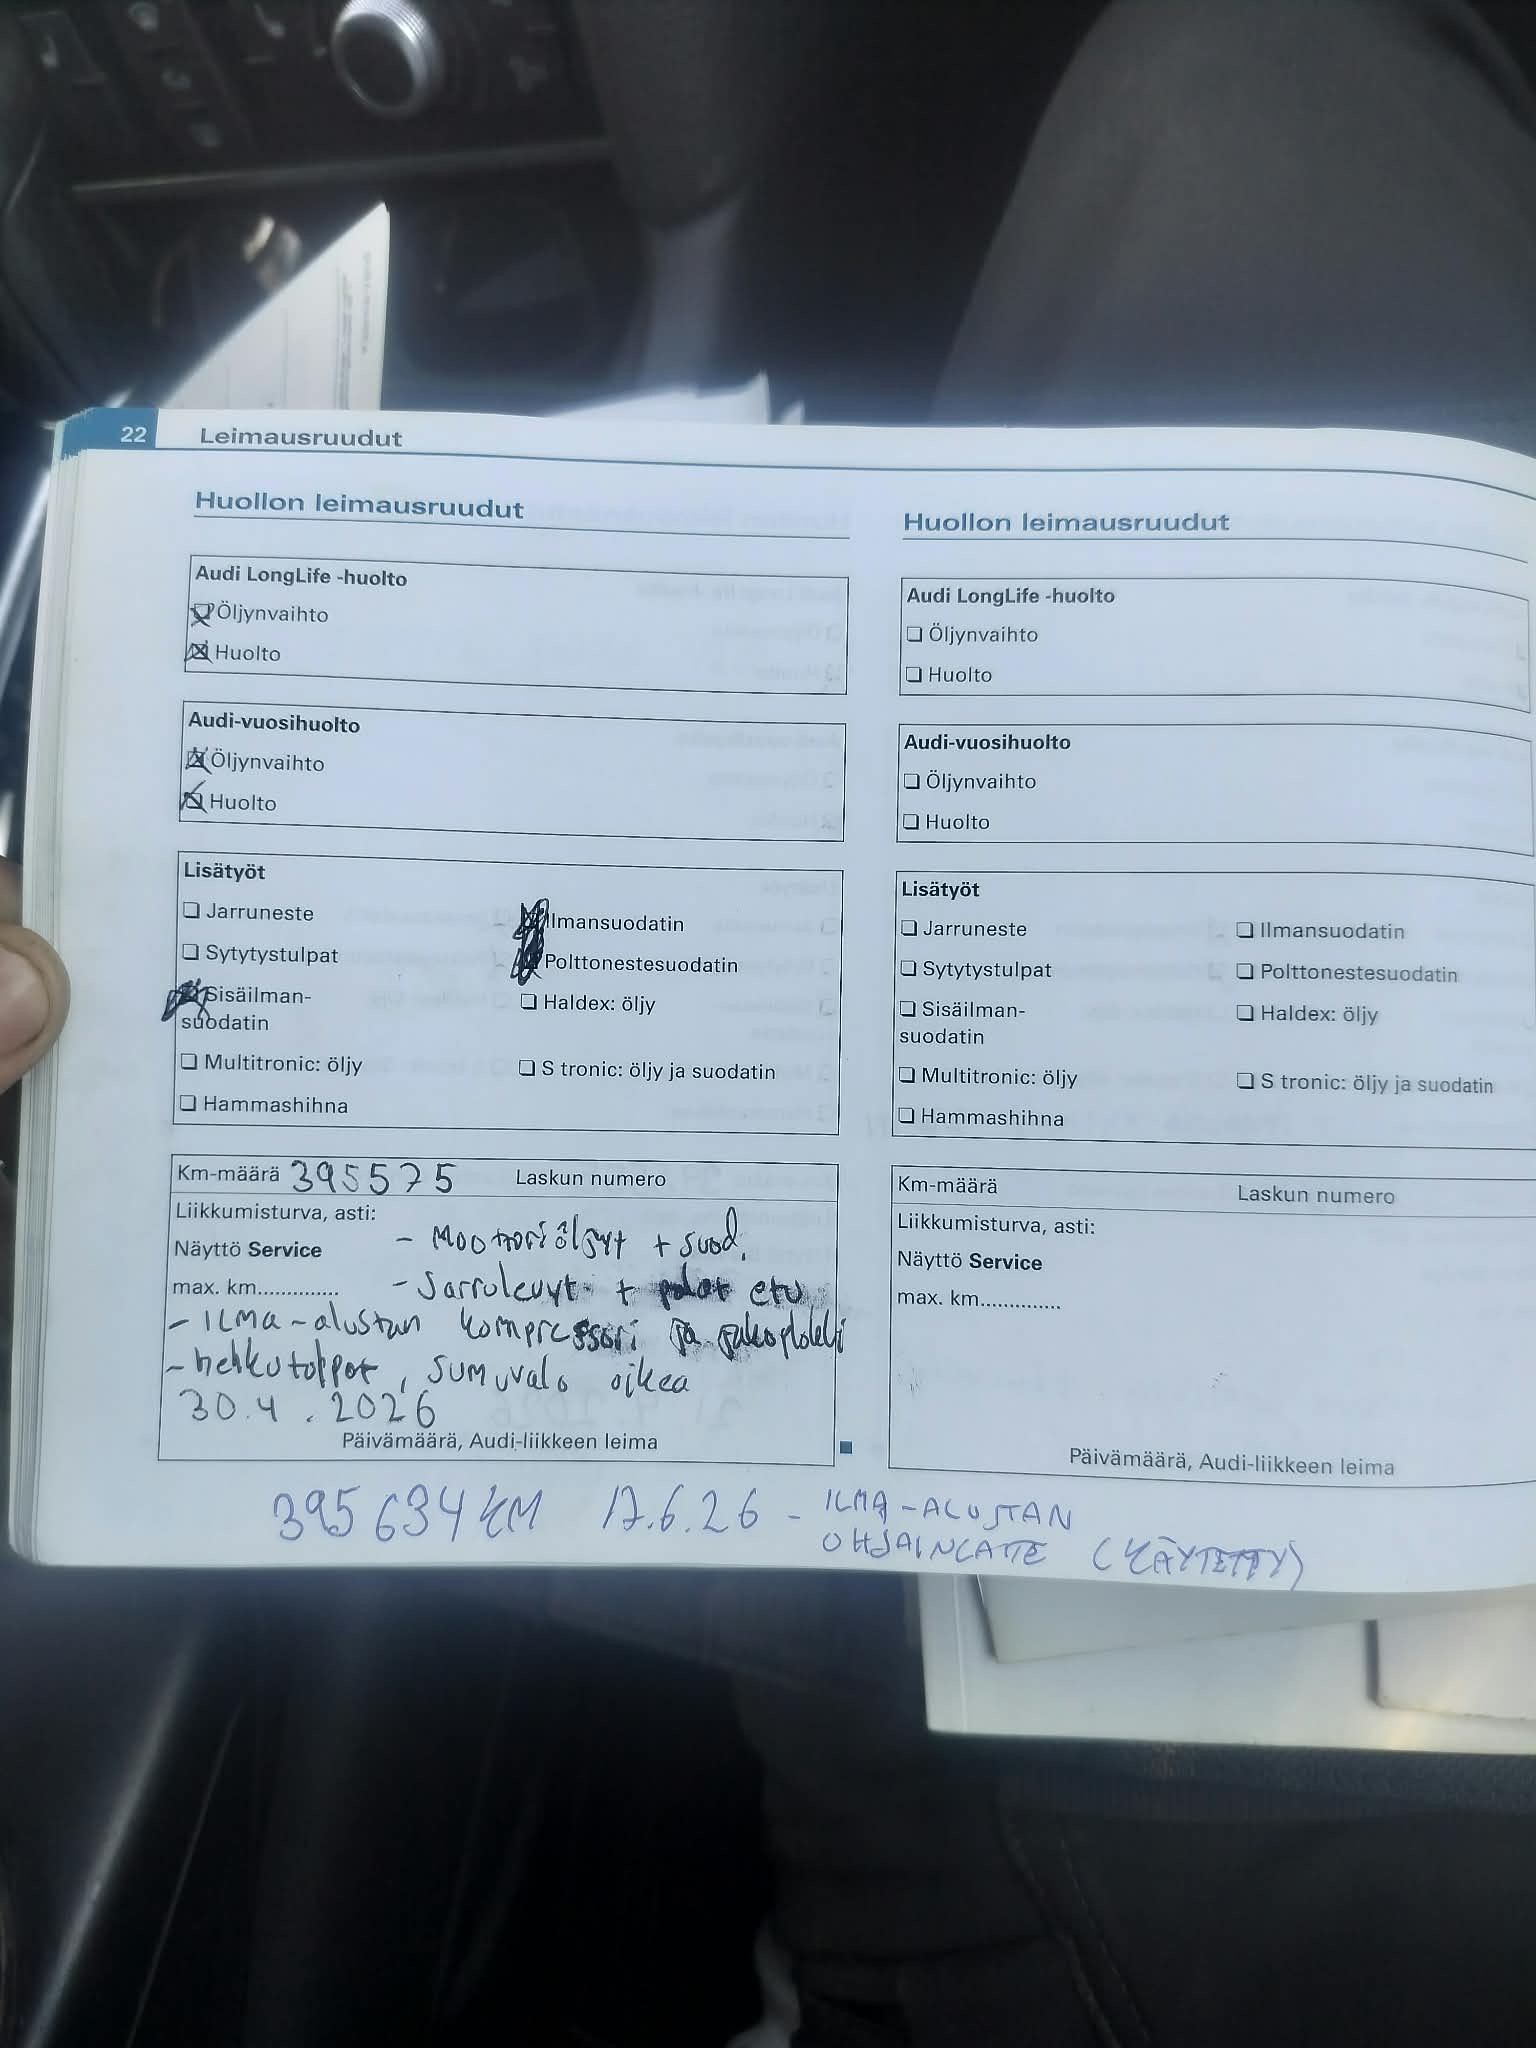 22 Leimausruudut
Huollon leimausruudut
Audi LongLife -huolto
Öljynvaihto
Huolto
Audi-vuosihuolto
Öljynvaihto
Huolto
Lisätyöt
Jarruneste
Ilmansuodatin
Sytytystulpat
Polttonestesuodatin
Sisäilman-
suodatin
Haldex: öljy
Multitronic: öljy
S tronic: öljy ja suodatin
Hammashihna
Km-määrä 395575 Laskun numero
Liikkumisturva, asti:
- Moottoriöljyt + suod.
Näyttö Service
max. km..............
- Jarrulevyt + palat etu
- ILMA-alustan kompressori ja
- hehkutolpat, sumuvalo oikea
30.4.2026
Päivämäärä, Audi-liikkeen leima
Huollon leimausruudut
Audi LongLife -huolto
Öljynvaihto
Huolto
Audi-vuosihuolto
Öljynvaihto
Huolto
Lisätyöt
Jarruneste
Ilmansuodatin
Sytytystulpat
Polttonestesuodatin
Sisäilman-
suodatin
Haldex: öljy
Multitronic: öljy
S tronic: öljy ja suodatin
Hammashihna
Km-määrä Laskun numero
Liikkumisturva, asti:
Näyttö Service
max. km..............
Päivämäärä, Audi-liikkeen leima
395634KM 17.6.26 - ILMA-ALUSTAN
OHJAINLAITE (KÄYTETTY)